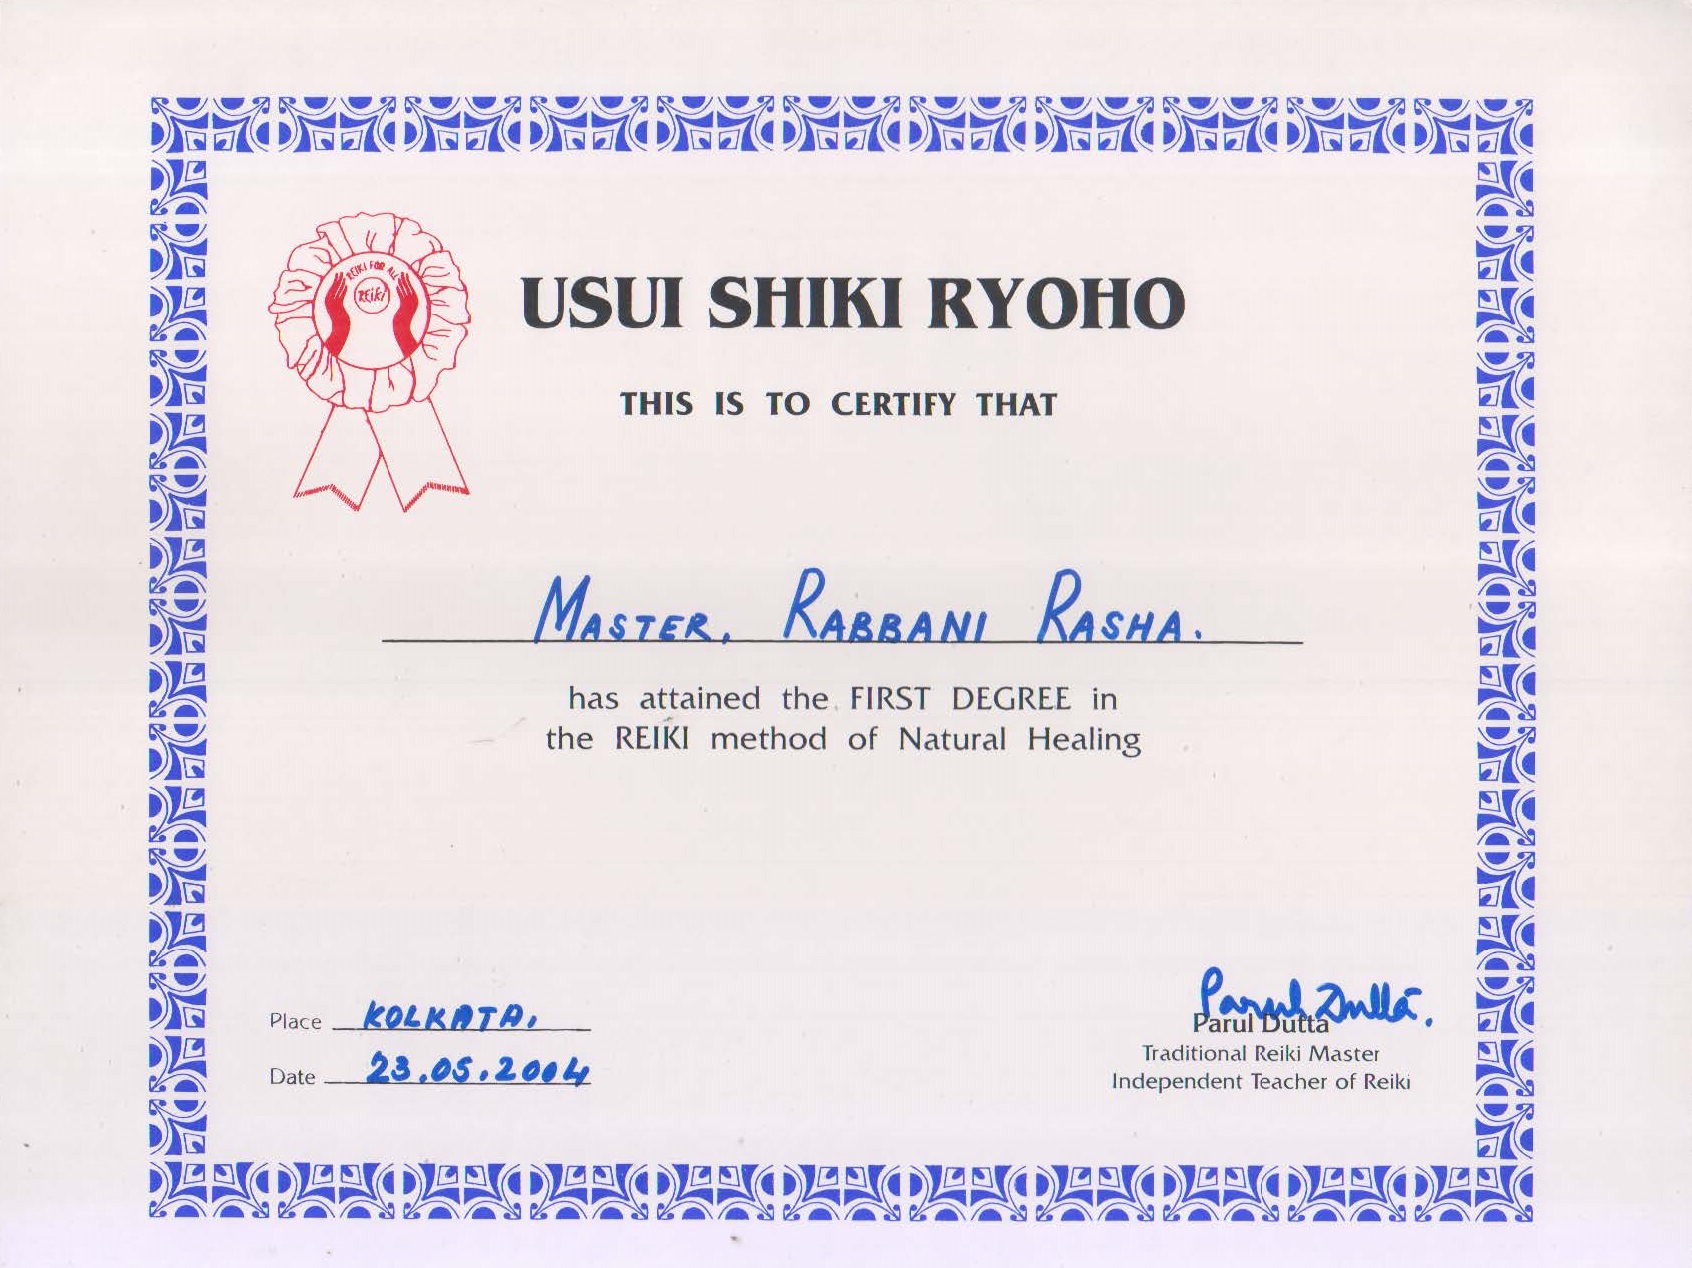 REIKI FOR ALL
REIKI
USUI SHIKI RYOHO
THIS IS TO CERTIFY THAT
MASTER. RABBANI RASHA.
has attained the FIRST DEGREE in
the REIKI method of Natural Healing
Place KOLKATA.
Date 23.05.2004
Parul Dutta.
Parul Dutta
Traditional Reiki Master
Independent Teacher of Reiki